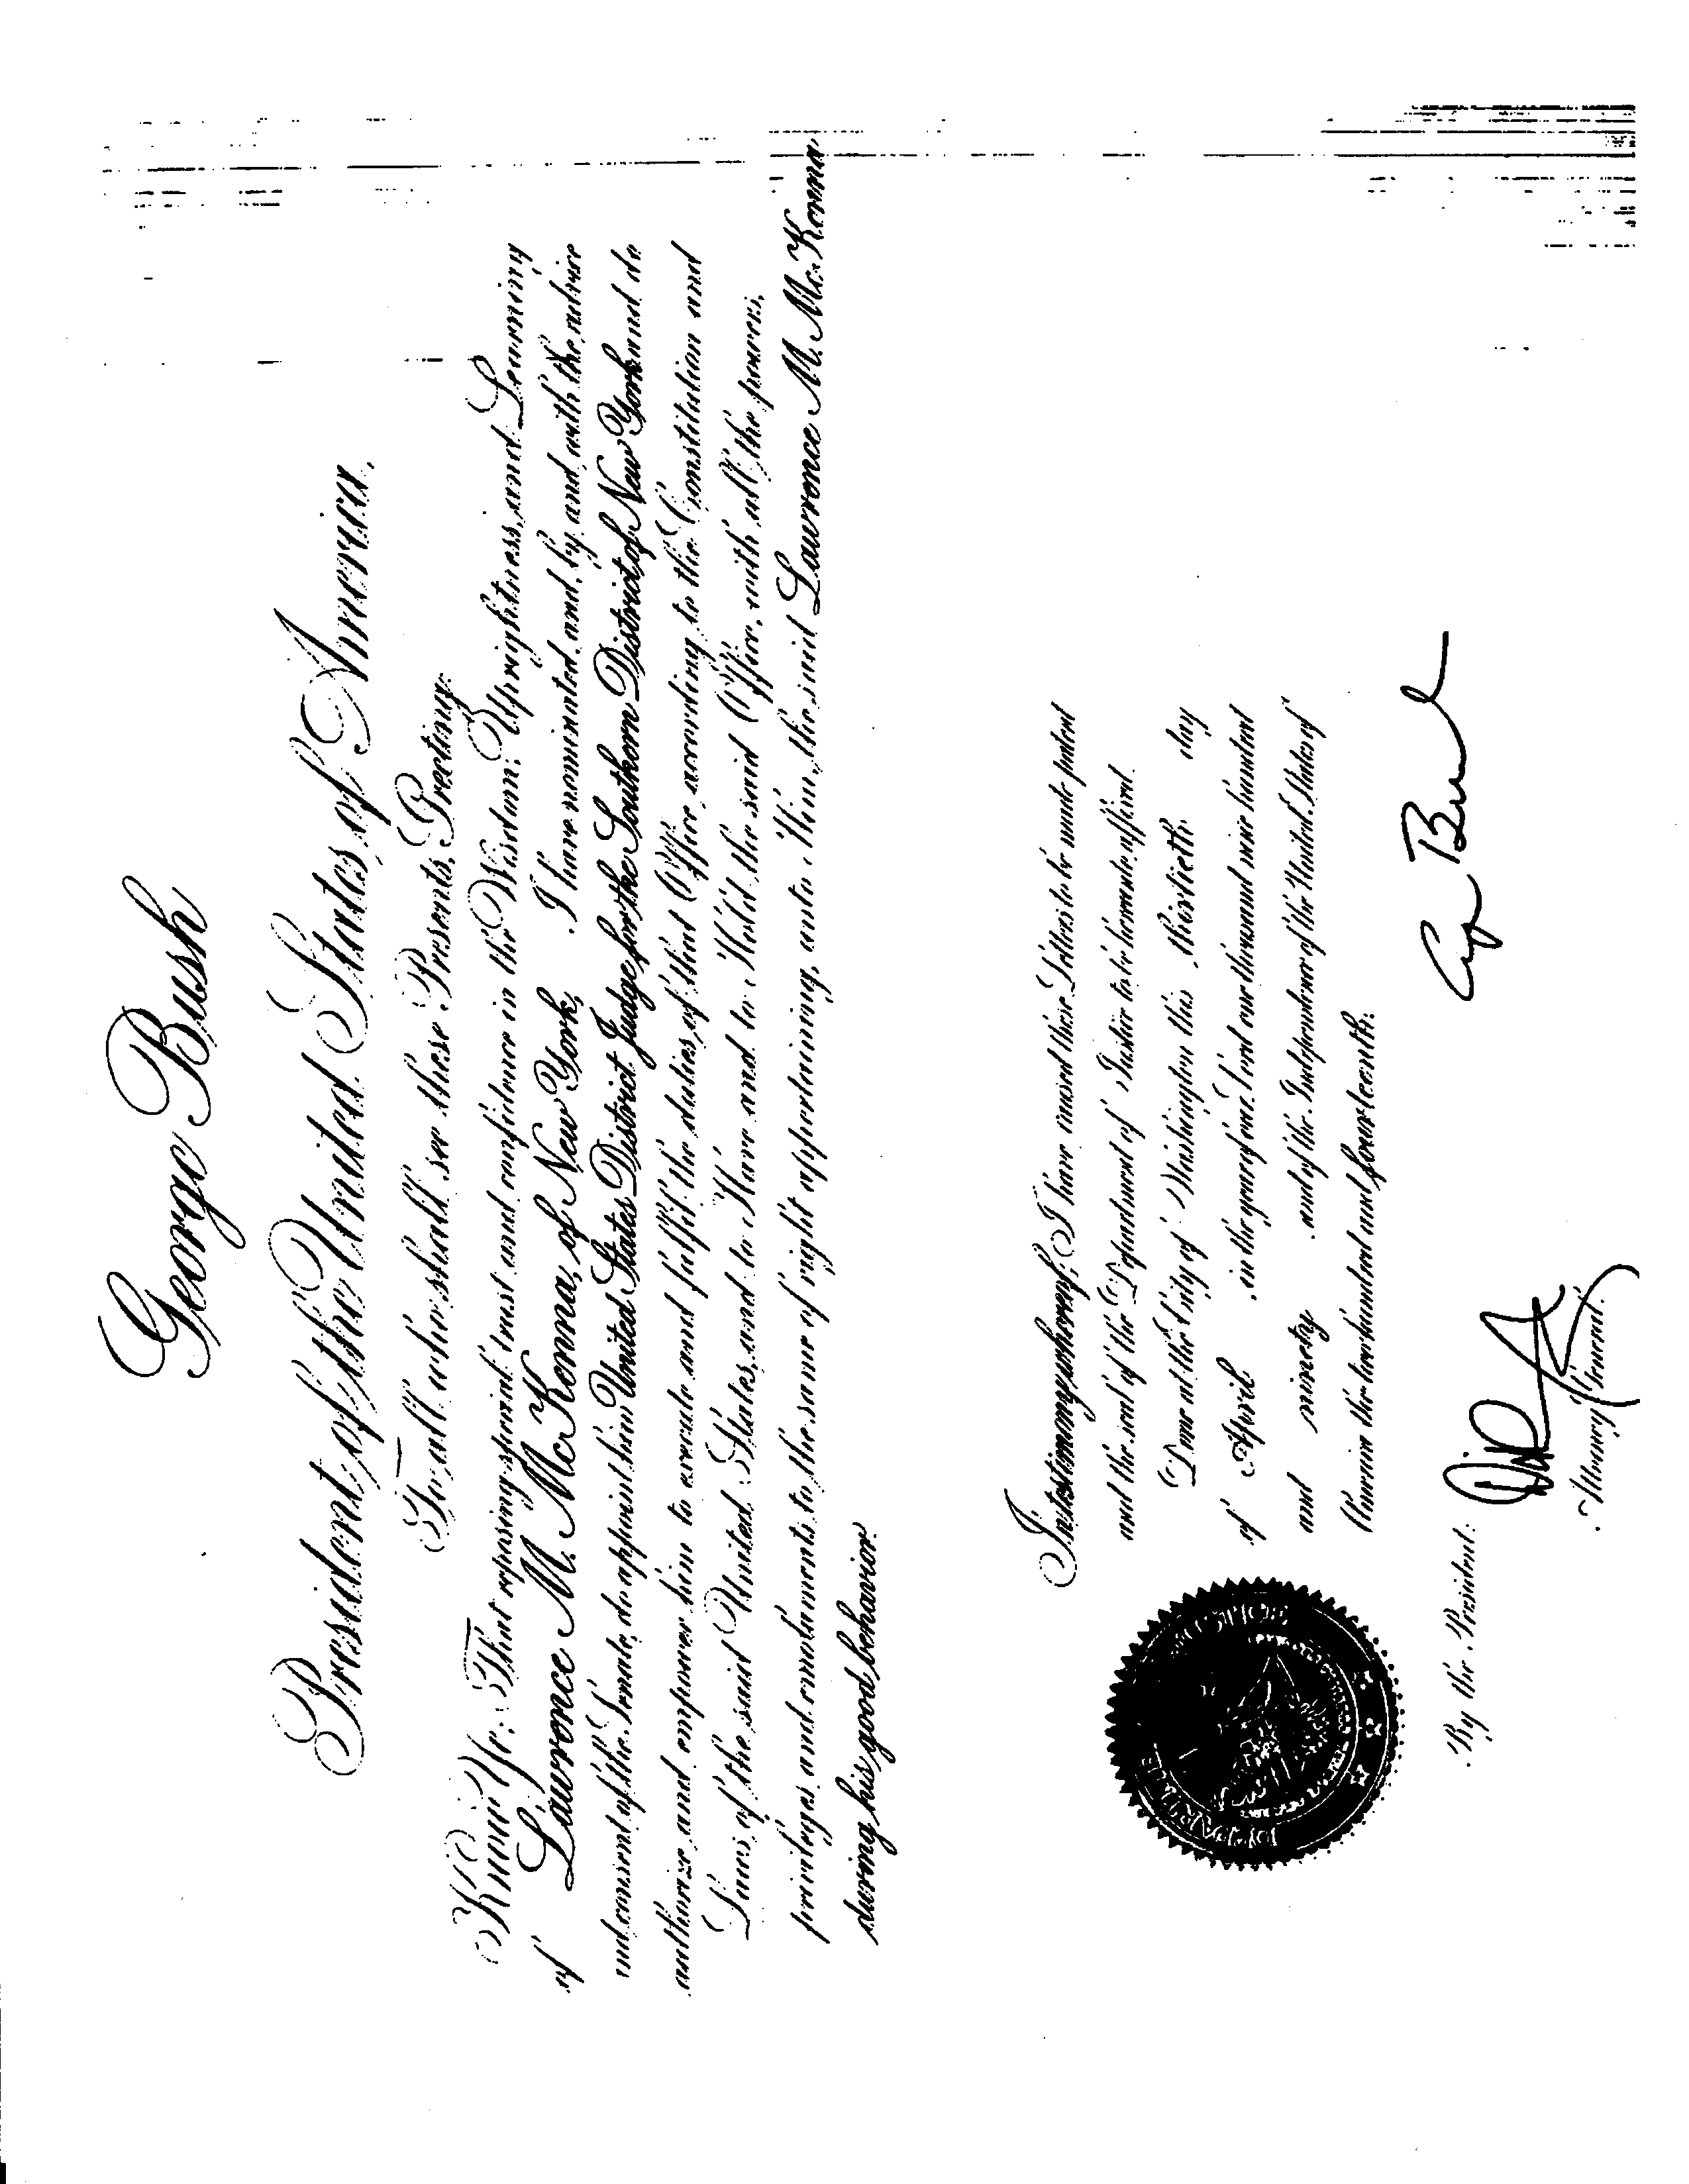 George Bush
President of the United States of America,
To all who shall see these Presents, Greeting:
Know Ye: That reposing special trust and confidence in the Wisdom, Uprightness, and Learning
of Lawrence M. McKenna, of New York, I have nominated, and, by and with the advice
and consent of the Senate, do appoint him United States District Judge for the Southern District of New York and do
authorize and empower him to execute and fulfil the duties of that Office according to the Constitution and
Laws of the said United States, and to Have and to Hold the said Office, with all the powers,
privileges and emoluments to the same of right appertaining, unto Him, the said Lawrence M. McKenna
during his good behavior.
In testimony whereof, I have caused these Letters to be made patent
and the seal of the Department of Justice to be hereunto affixed.
Done at the City of Washington this thirtieth day
of April in the year of our Lord one thousand nine hundred
and ninety and of the Independence of the United States of
America the two hundred and fourteenth.
G Bush
By the President:
Attorney General.